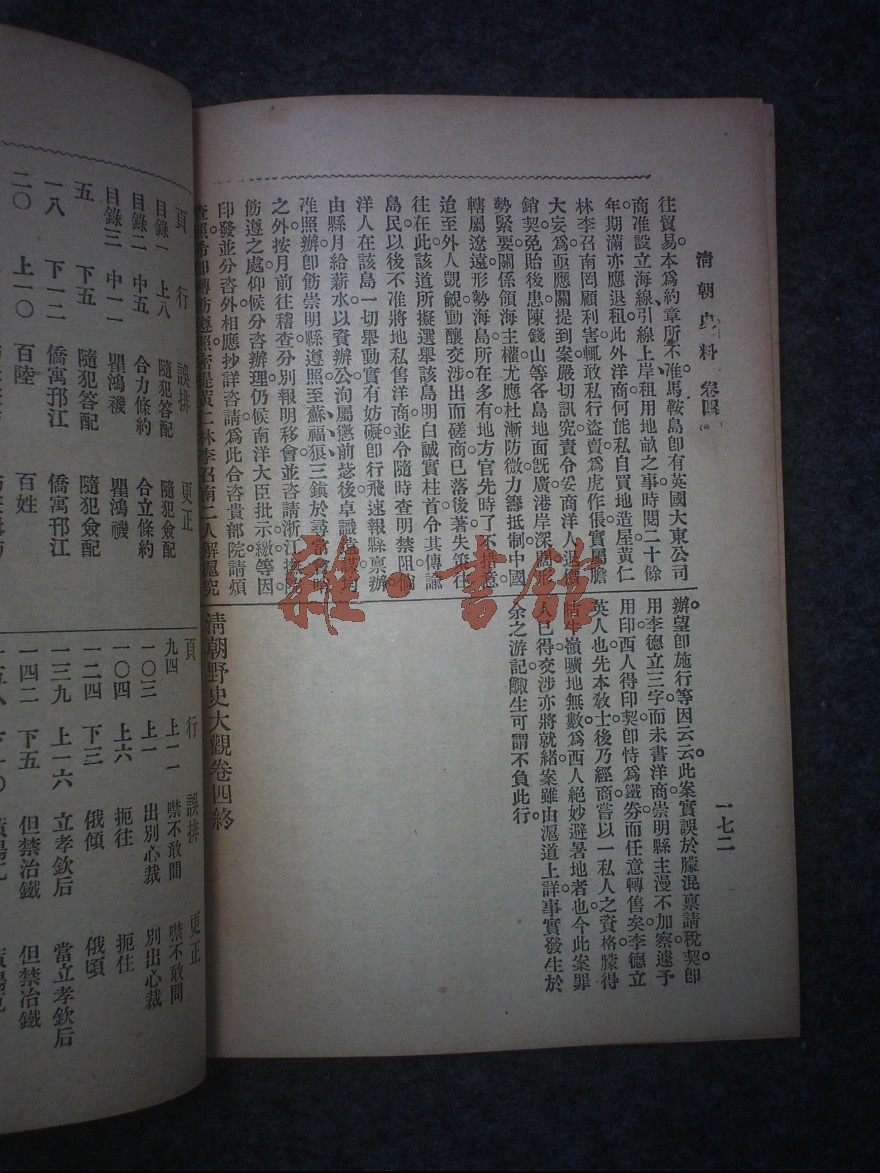 清朝史料 卷四
一七二
往貿易本爲約章所不准馬鞍島卽有英國大東公司
商准設立海線引線上岸租用地畝之事時閱二十餘
年期滿亦應退租此外洋商何能私自買地造屋黃仁
林李召南罔顧利害輒敢私行盜賣爲虎作倀實屬膽
大妄爲亟應關提到案嚴切訊究責令妥商洋人退價
銷契免貽後患陳錢山等各島地面旣廣港岸深闊形
勢緊要關係領海主權尤應杜漸防微力籌抵制中國
轄屬遼遠形勢海島所在多有地方官先時了不措意
迨至外人覬覦動釀交涉出而磋商已落後著失策往
往在此該道所擬選舉該島明白誠實柱首令其傳諭
島民以後不准將地私售洋商並令隨時查明禁阻倘
洋人在該島一切舉動實有妨礙卽行飛速報縣禀辦
由縣月給薪水以資辦公洵屬懲前毖後卓識遠
准照辦卽飭崇明縣遵照至蘇福狼三鎮於尋常
之外按月前往稽查分別報明移會並咨請浙江撫院
飭遵之處仰候分咨辦理仍候南洋大臣批示繳等因
印發並分咨外相應抄詳咨請爲此合咨貴部院請煩
查照希卽轉飭遵照密提黃仁林李召南二人解滬究
辦望卽施行等因云云此案實誤於朦混禀請稅契卽
用李德立三字而未書洋商崇明縣主漫不加察遽予
用印西人得印契卽恃爲鐵券而任意轉售矣李德立
英人也先本敎士後乃經商嘗以一私人之資格朦得
牯牛嶺曠地無數爲西人絕妙避暑地者也今此案罪
人已得交涉亦將就緒案雖由滬道上詳事實發生於
余之游記鯫生可謂不負此行
淸朝野史大觀卷四終
雜·書館
頁 行 誤排 更正
目錄一 上八 隨犯答配 隨犯僉配
目錄二 中五 合力條約 合立條約
目錄三 中一一 瞿鴻禨 瞿鴻禨
五 下五 隨犯答配 隨犯僉配
一八 下一二 僑寓邗江 僑寓邗江
二〇 上一〇 百陸 百姓
頁 行 誤排 更正
九四 上一一 噤不敢間 噤不敢問
一〇三 上一 出別心裁 別出心裁
一〇四 上六 扼往 扼住
一二四 下三 俄傾 俄頃
一三九 上一六 立孝欽后 當立孝欽后
一四二 下五 但禁治鐵 但禁冶鐵